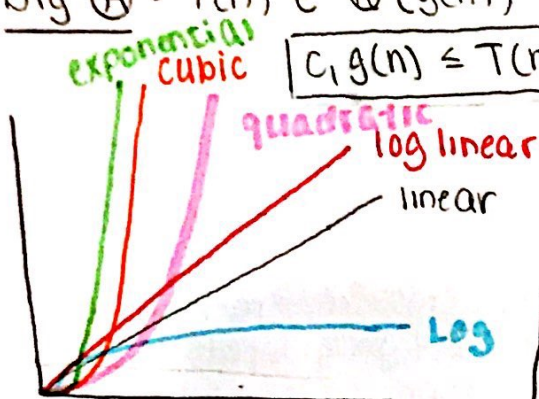 Big Θ - T(n) ∈ Θ(g(n))
exponential
cubic
C₁ g(n) ≤ T(n
quadratic
log linear
linear
Log